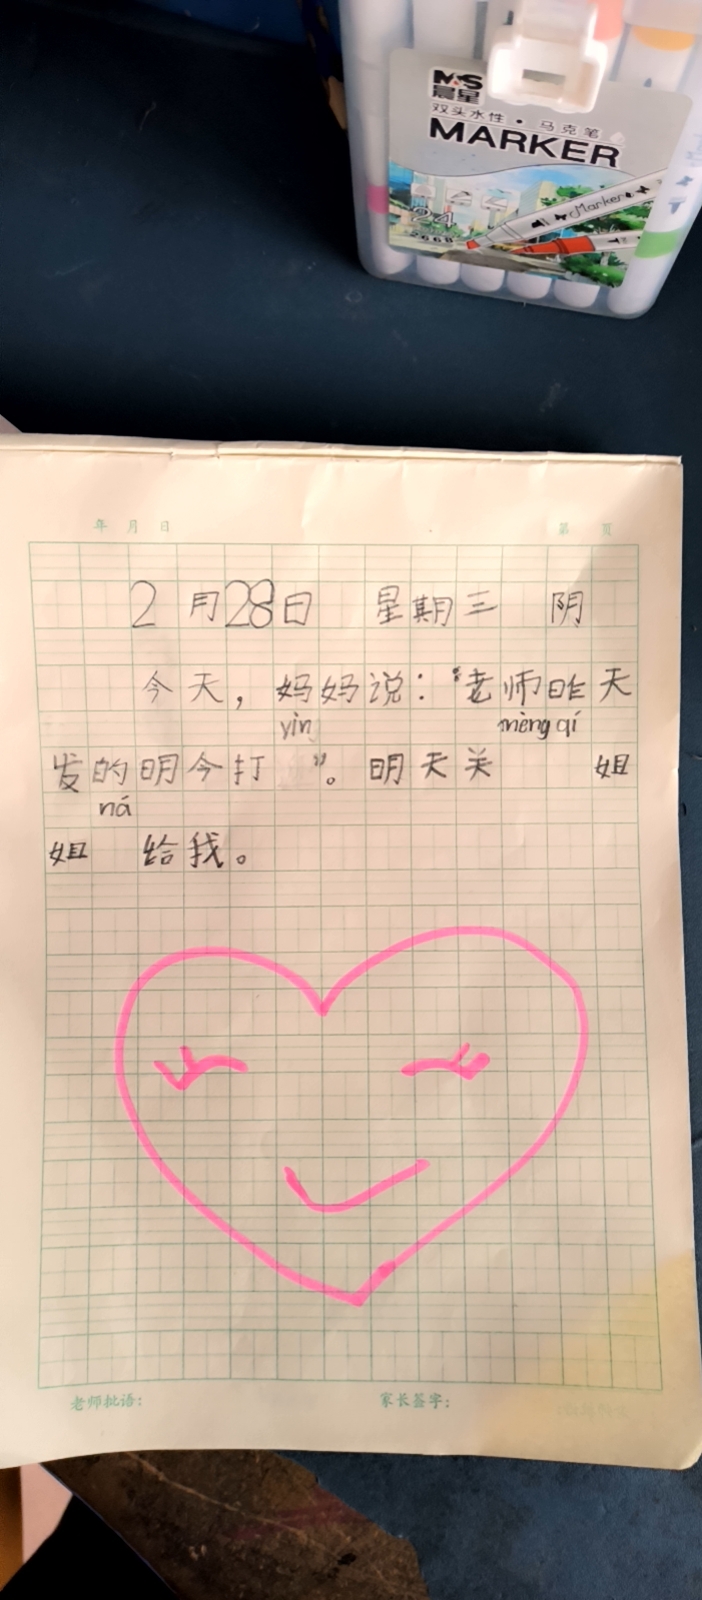 M&G
晨星
双头水性·马克笔
MARKER
Marker
24
2668
年 月 日
第 页
2月28日 星期三 阴
今天，妈妈说：“老师昨天
yìn mèng qí
发的明今打 ”。明天关 姐
ná
姐 给我。
老师批语：
家长签字：